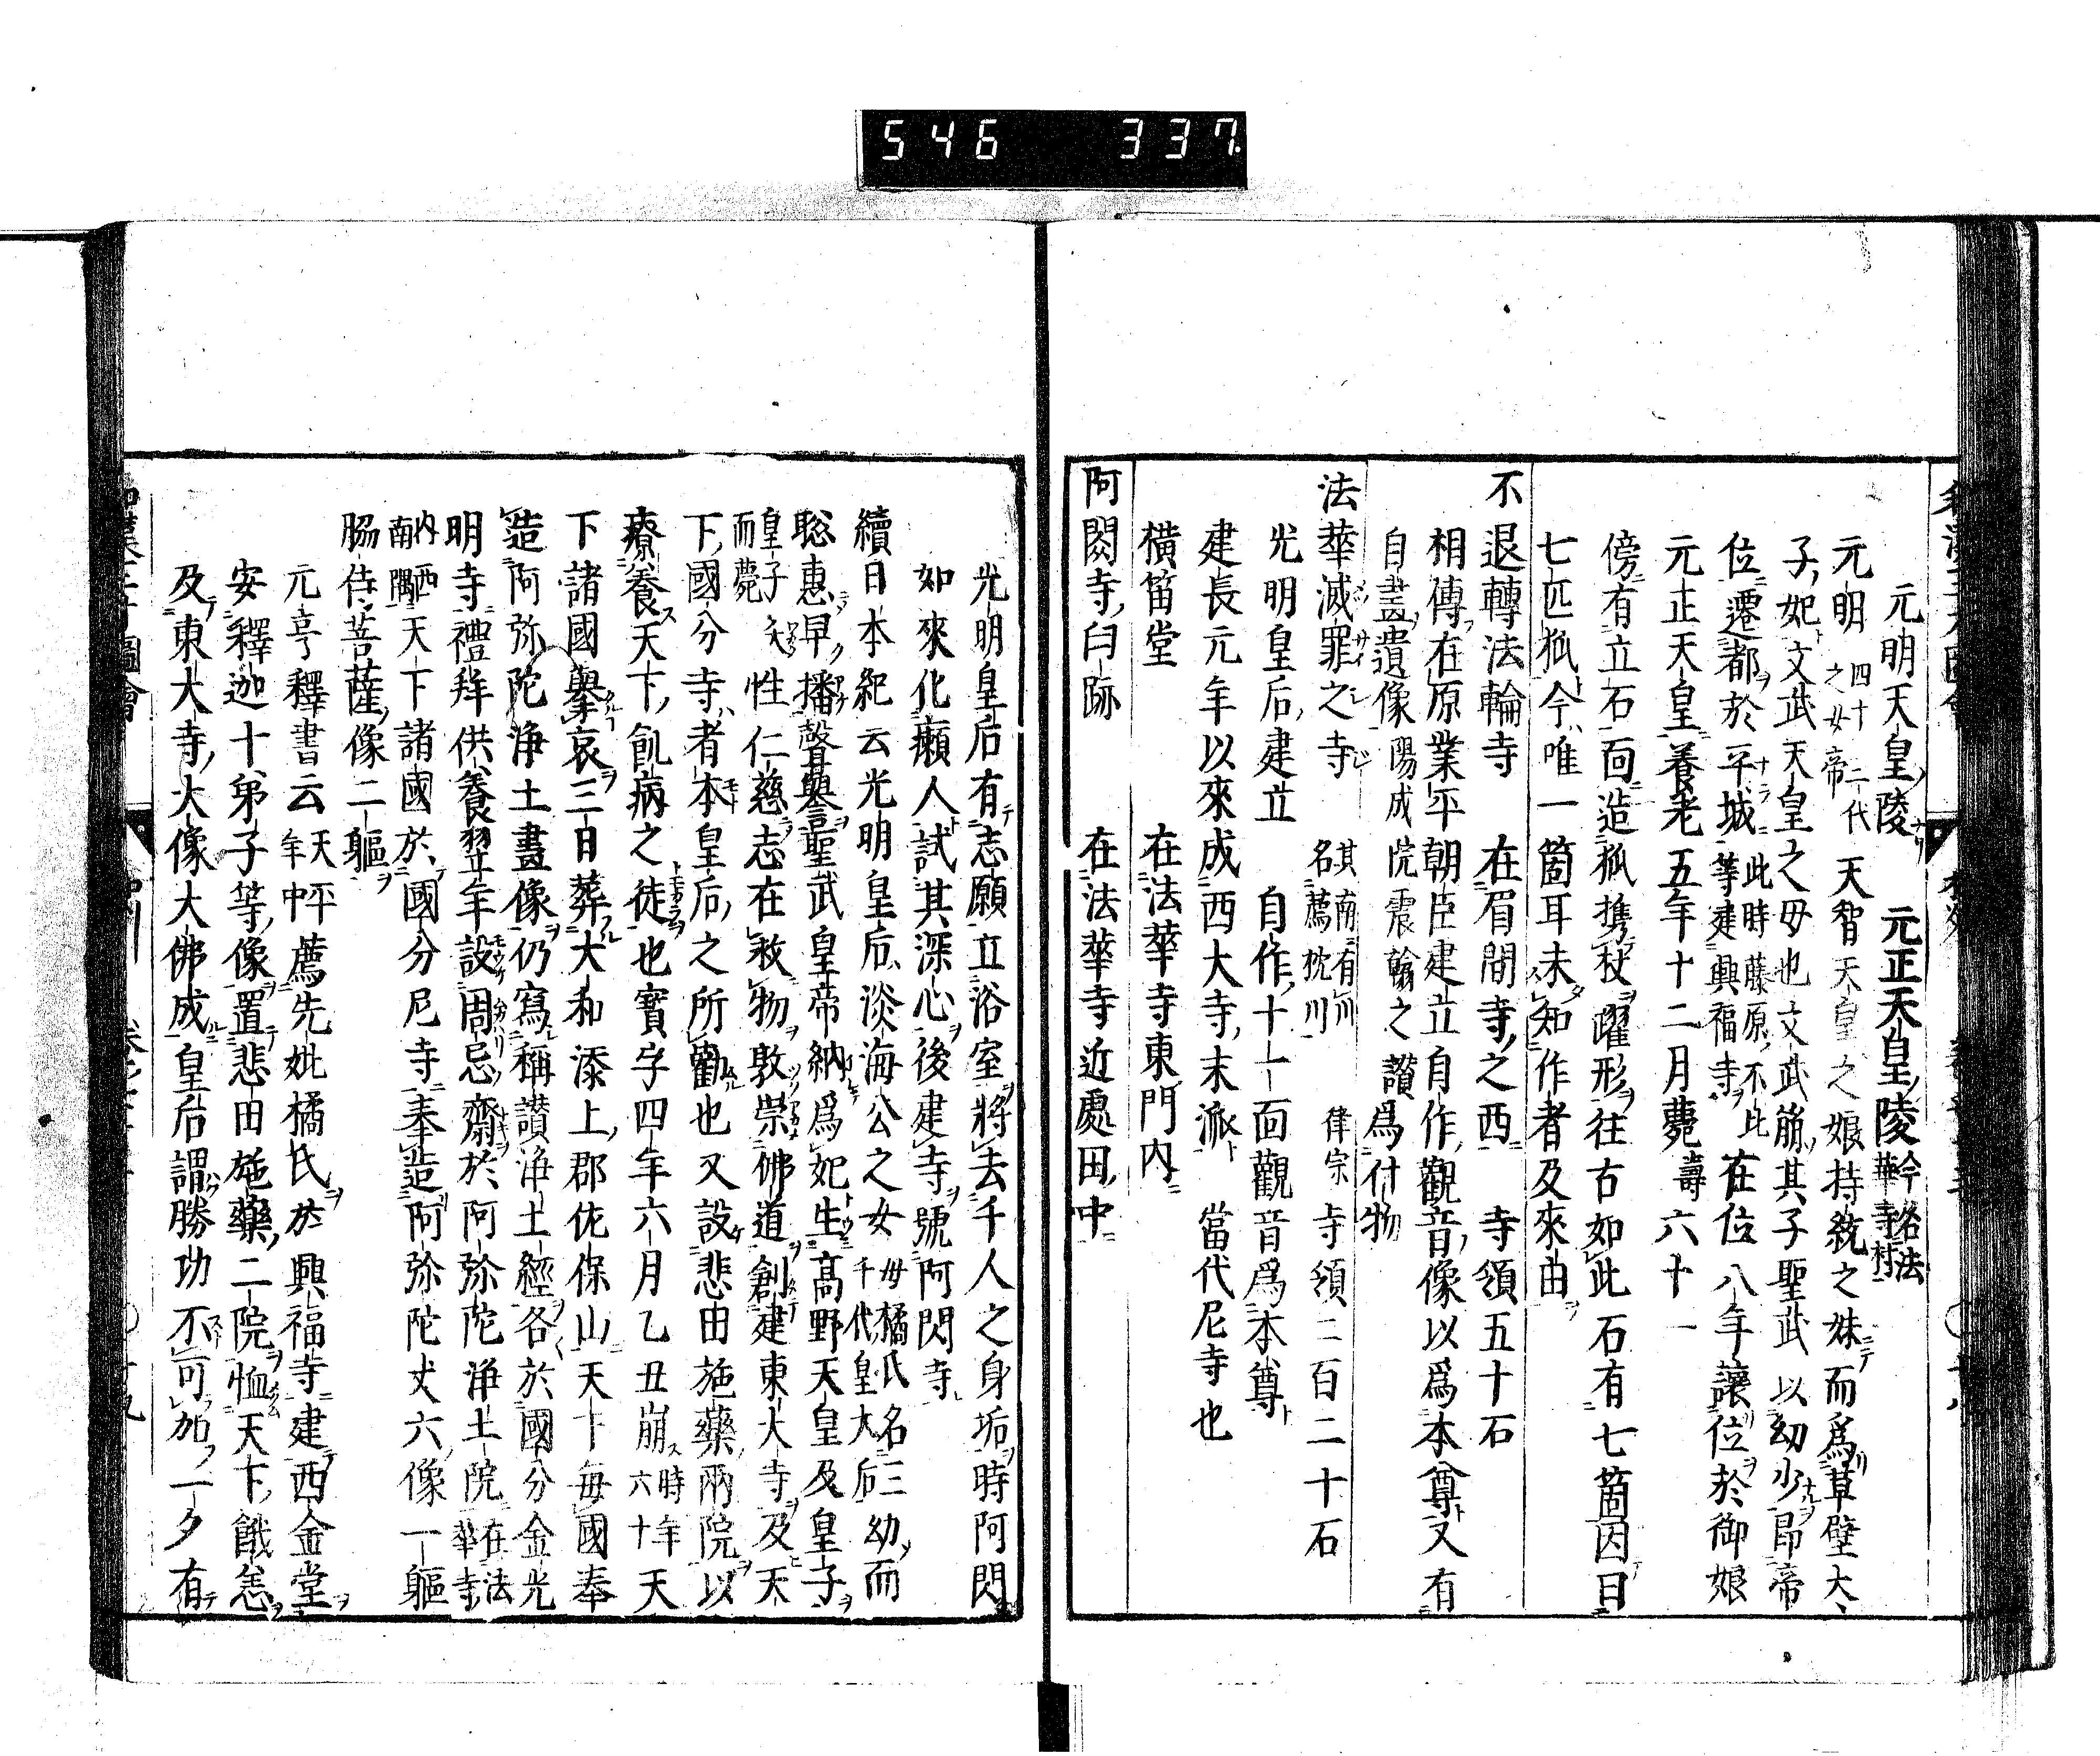 546 337
元明天皇陵 元正天皇陵 今名法華寺村
元明 四十三代之女帝 天智天皇之娘持統之妹而爲草壁太
子妃文武天皇之母也文武崩其子聖武以幼少昂帝
位遷都於平城 此時藤原不比等建興福寺 在位八年讓位於御娘
元正天皇養老五年十二月薨壽六十一
傍有立石面造狐携杖躍形往古如此石有七箇因曰
七匹狐今唯一箇耳未知作者及來由
不退轉法輪寺 在眉間寺之西 寺領五十石
相傳在原業平朝臣建立自作觀音像以爲本尊又有
自畫遺像陽成院震翰之讃爲什物
法華滅罪之寺 其南有川名薦枕川 律宗 寺領二百二十石
光明皇后建立 自作十一面觀音爲本尊
建長元年以來成西大寺末派 當代尼寺也
橫笛堂 在法華寺東門内
阿閦寺臼跡 在法華寺近處田中
光明皇后有志願立浴室將去千人之身垢時阿閦
如來化癩人試其深心後建寺號阿閦寺
續日本紀云光明皇后淡海公之女 母橘氏名三千代皇太后 幼而
聡惠早播聲譽聖武皇帝納爲妃生高野天皇及皇子
皇子夭而薨 性仁慈志在救物敦崇佛道創建東大寺及天
下國分寺者本皇后之所勸也又設悲田施藥兩院以
療養天下飢病之徒也寳字四年六月乙丑崩 時年六十 天
下諸國擧哀三日葬大和添上郡佐保山天下每國奉
造阿弥陀淨土畫像仍寫稱讃淨土經各於國分金光
明寺禮拜供養翌年設周忌齋於阿弥陀淨土院 在法華寺
内西南隅 天下諸國於國分尼寺奉造阿弥陀丈六像一軀
脇侍菩薩像二軀
元亨釋書云 天平年中 薦先妣橘氏於興福寺建西金堂
安釋迦十弟子等像置悲田施藥二院恤天下餓恙
及東大寺大像大佛成皇后謂勝功不可加一夕有